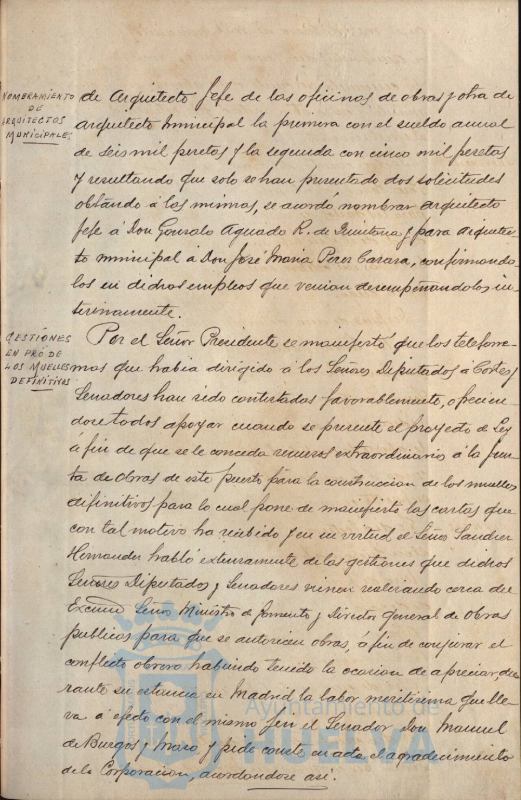 NOMBRAMIENTO
DE
ARQUITECTOS
MUNICIPALES
de Arquitecto Jefe de las oficinas de obras y otra de
arquitecto municipal la primera con el sueldo anual
de seis mil pesetas y la segunda con cinco mil pesetas
y resultando que solo se han presentado dos solicitudes
obtando á las mismas, se acordó nombrar arquitecto
Jefe á Don Gonzalo Aguado R. de Quintana y para arquitec
to municipal á Don José Maria Perez Carasa, confirmando
los en dichos empleos que venian desempeñandolos in-
terinamente.
GESTIONES
EN PRO DE
LOS MUELLES
DEFINITIVOS
Por el Señor Presidente se manifestó que los telefone-
mas que habia dirigido á los Señores Diputados á Cortes y
Senadores han sido contestadas favorablemente, ofrecien-
dose todos apoyar cuando se presente el proyecto de Ley
á fin de que se le conceda recursos extraordinario á la Jun
ta de obras de este puerto para la construccion de los muelles
difinitivos para lo cual pone de manifiesto las cartas que
con tal motivo ha recibido y en su virtud el Señor Sanchez
Hernandez habló extensamente de las gestiones que dichos
Señores Diputados y Senadores vienen realizando cerca del
Excmo Señor Ministro de fomento y Director general de Obras
publicas para que se autoricen obras, á fin de conjurar el
conflicto obrero habiendo tenido la ocasion de apreciar, du
rante su estancia en Madrid la labor meritisima que lle-
va á efecto con el mismo fin el Senador Don Manuel
de Burgos y Mazo y pide conste en acta el agradecimiento
de la Corporacion, acordandose asi.
Ayuntamiento de
HUELVA